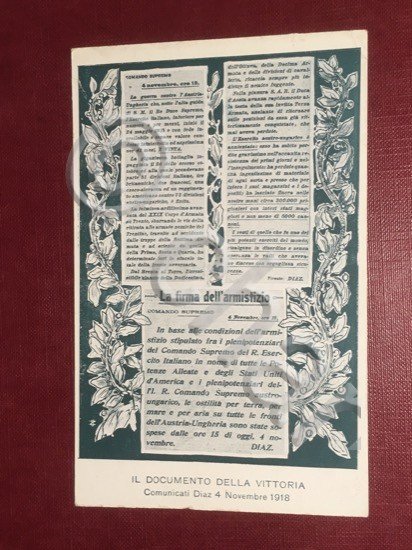 COMANDO SUPREMO
4 novembre, ore 12.
La guerra contro l'Austria-
Ungheria che, sotto l'alta guida
di S. M. il Re Duce Supremo,
Italiano, inferiore per
numero e per mezzi, iniziò il
24 maggio 1915 e con fede in-
crollabile e tenace valore con-
dusse ininterrotta ed asprissima
per 41 mesi, è VINTA.
La gigantesca battaglia in-
gaggiata il 24 dello scorso ot-
tobre ed alla quale prendevano
parte 51 divisioni Italiane, tre
britanniche, due francesi, una
cecoslovacca ed un reggimen-
to americano contro 73 divisioni
austro-ungariche, è finita.
La fulminea
del XXIX Corpo d'Armata
su Trento, sbarrando le vie della
ritirata alle armate nemiche del
Trentino, travolte ad occidente
dalle truppe della Settima ar-
mata e ad oriente da quelle
della Prima, Sesta e Quarta, ha
determinato ieri lo sfacelo to-
tale della fronte avversaria.
Dal Brenta al Torre, l'irresi-
stibile slancio della Dodicesima,
dell'Ottava, della Decima Ar-
mata e delle divisioni di caval-
leria, ricaccia sempre più in-
dietro il nemico fuggente.
Nella pianura S. A. R. il Duca
d'Aosta avanza rapidamente al-
la testa della sua invitta Terza
Armata, anelante di ritornare
sulle posizioni da essa già vit-
toriosamente conquistate, che
mai aveva perdute.
L'Esercito austro-ungarico è
annientato: esso ha subito per-
dite gravissime nell'accanita re-
sistenza dei primi giorni e nel-
l'inseguimento; ha perdute quan-
tità ingentissime di materiale
di ogni sorta e presso che per
intero i suoi magazzini e i de-
positi; ha lasciato finora nelle
nostre mani circa 300.000 pri-
gionieri con interi stati mag-
giori e non meno di 5000 can-
noni.
I resti di quello che fu uno dei
più potenti eserciti del mondo,
risalgono in disordine e senza
speranza le valli che aveva-
no disceso con orgogliosa sicu-
rezza.
Firmato: DIAZ.
La firma dell'armistizio
COMANDO SUPREMO
4 Novembre, ore 16.
In base alle condizioni dell'armi-
stizio stipulato fra i plenipotenziari
del Comando Supremo del R. Eser-
cito Italiano in nome di tutte le Po-
tenze Alleate e degli Stati Uniti
d'America e i plenipotenziari del-
l'I. R. Comando Supremo austro-
ungarico, le ostilità per terra, per
mare e per aria su tutte le fronti
dell'Austria-Ungheria sono state so-
spese dalle ore 15 di oggi, 4 no-
vembre.
DIAZ.
IL DOCUMENTO DELLA VITTORIA
Comunicati Diaz 4 Novembre 1918